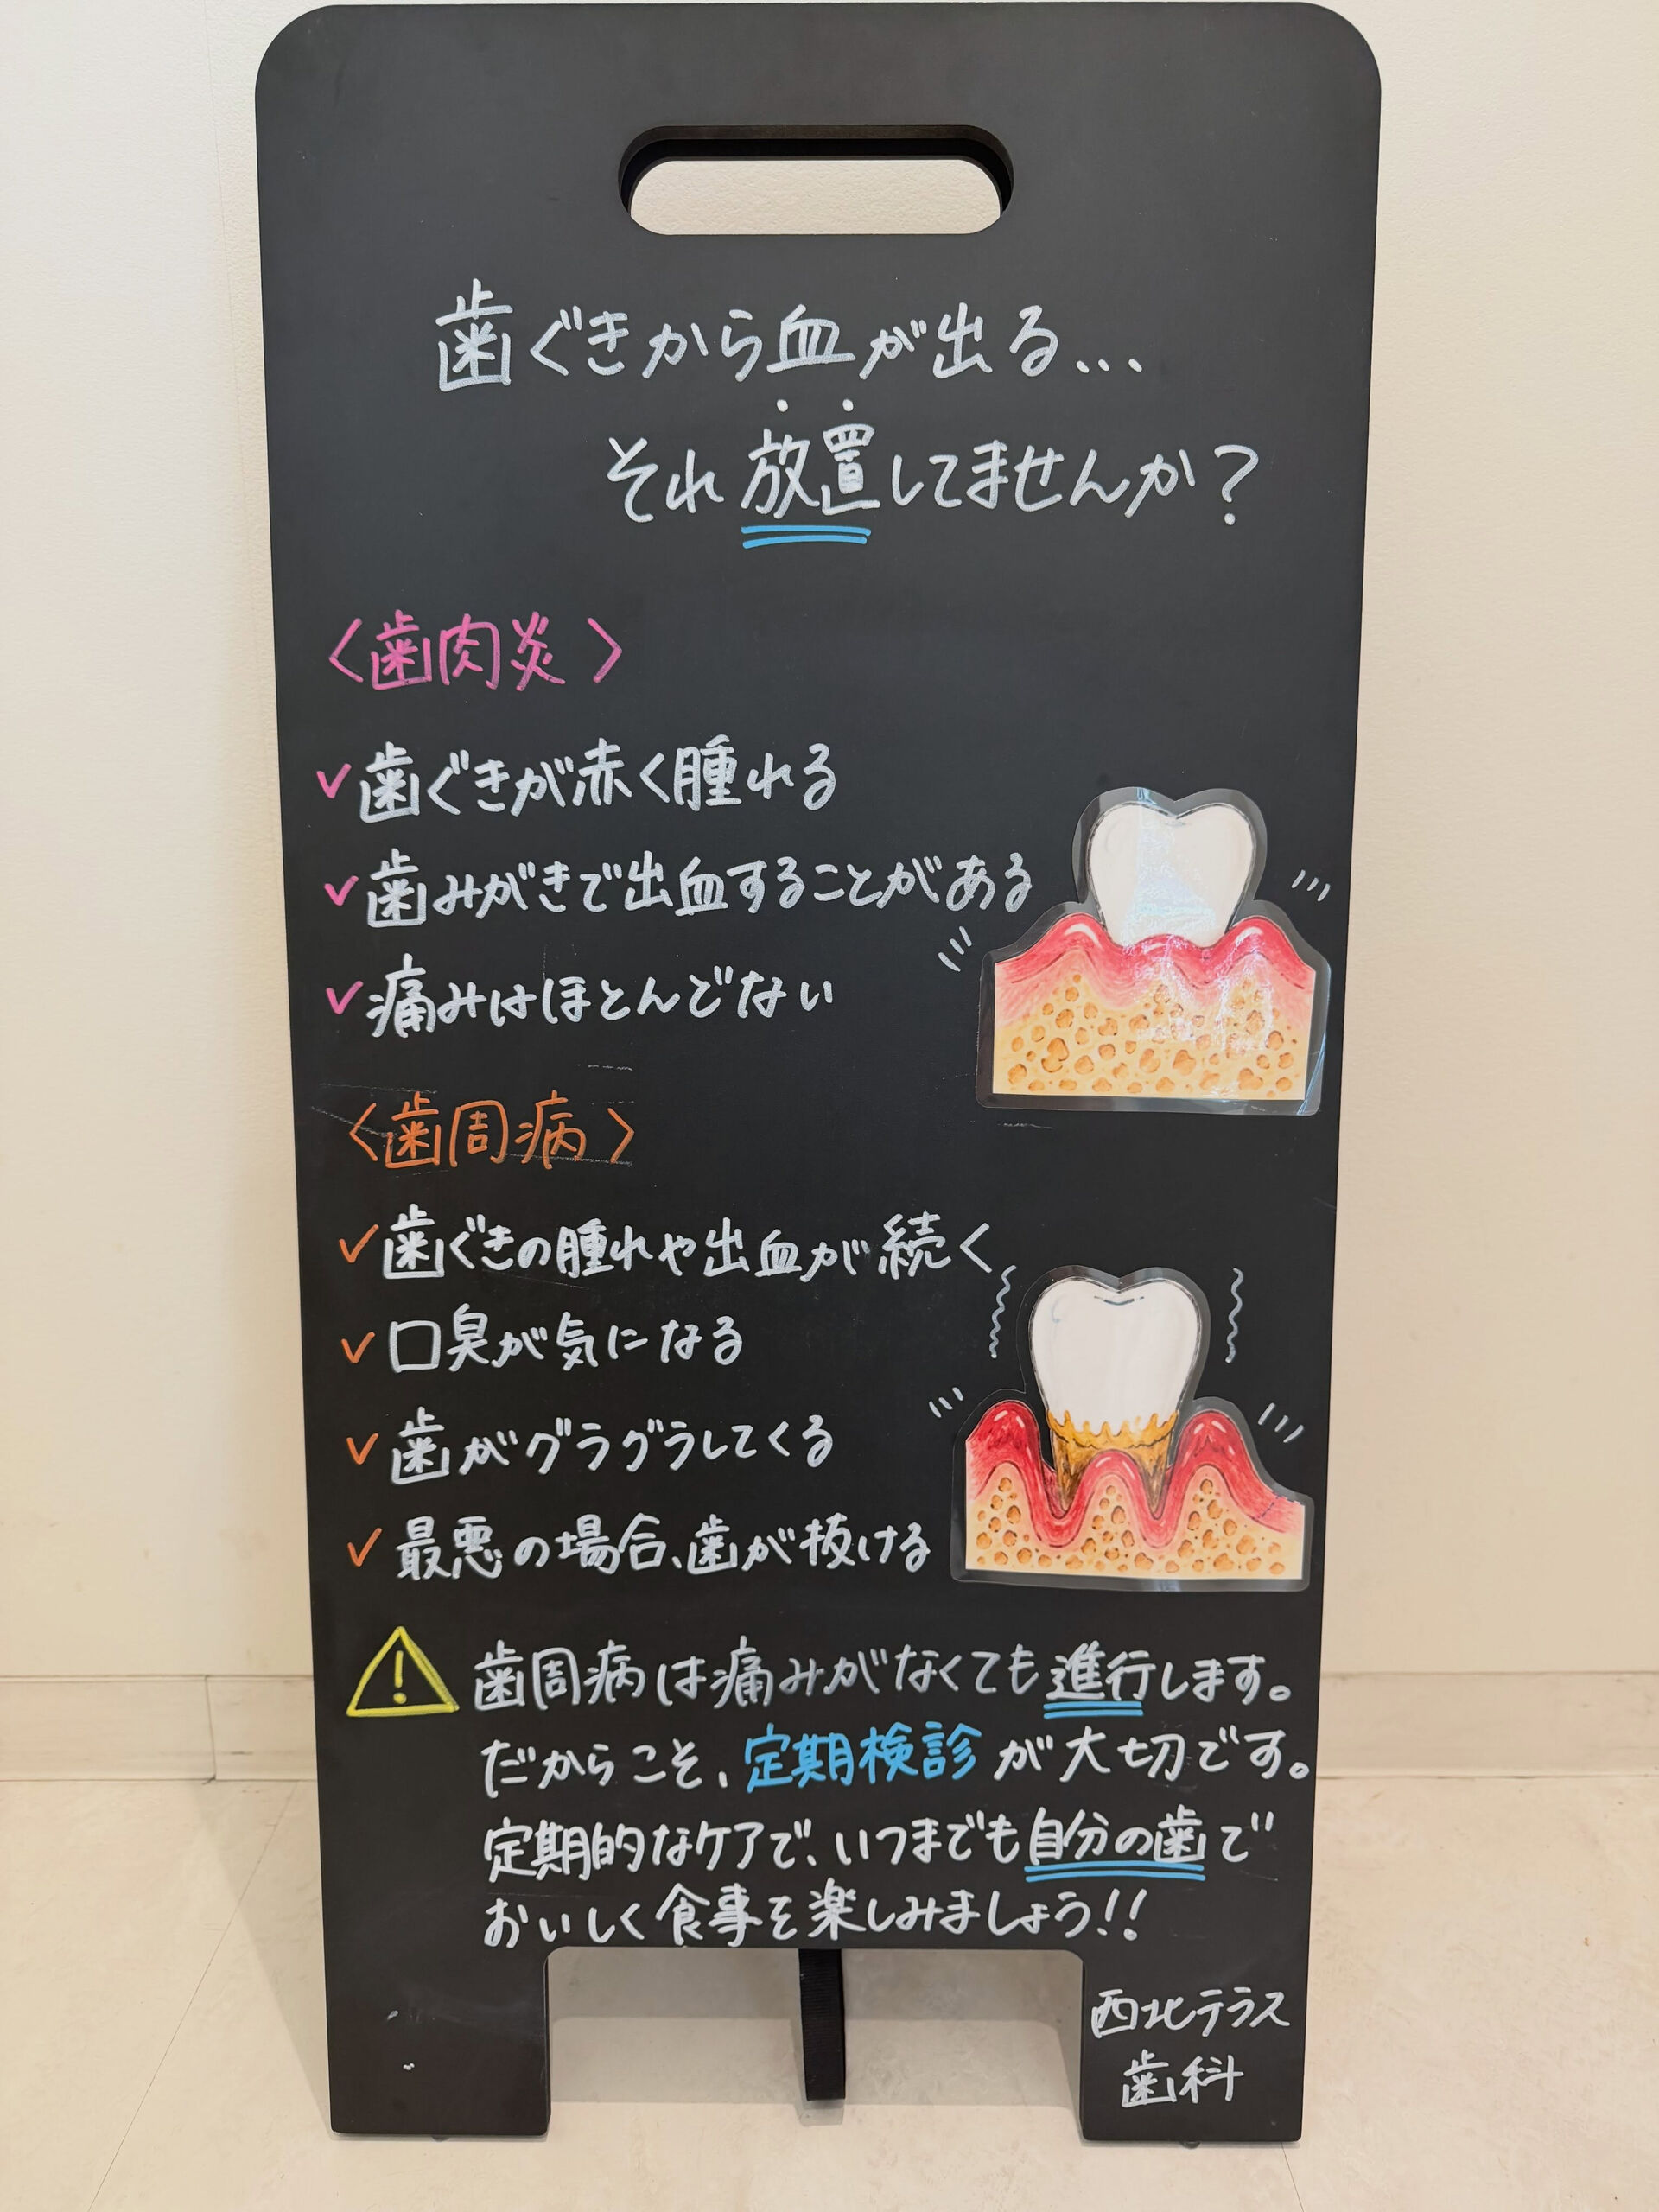 歯ぐきから血が出る...
それ放置してませんか?
〈歯肉炎〉
✓歯ぐきが赤く腫れる
✓歯みがきで出血することがある
✓痛みはほとんどない
〈歯周病〉
✓歯ぐきの腫れや出血が続く
✓口臭が気になる
✓歯がグラグラしてくる
✓最悪の場合、歯が抜ける
歯周病は痛みがなくても進行します。
だからこそ、定期検診が大切です。
定期的なケアで、いつまでも自分の歯で
おいしく食事を楽しみましょう!!
西北テラス
歯科